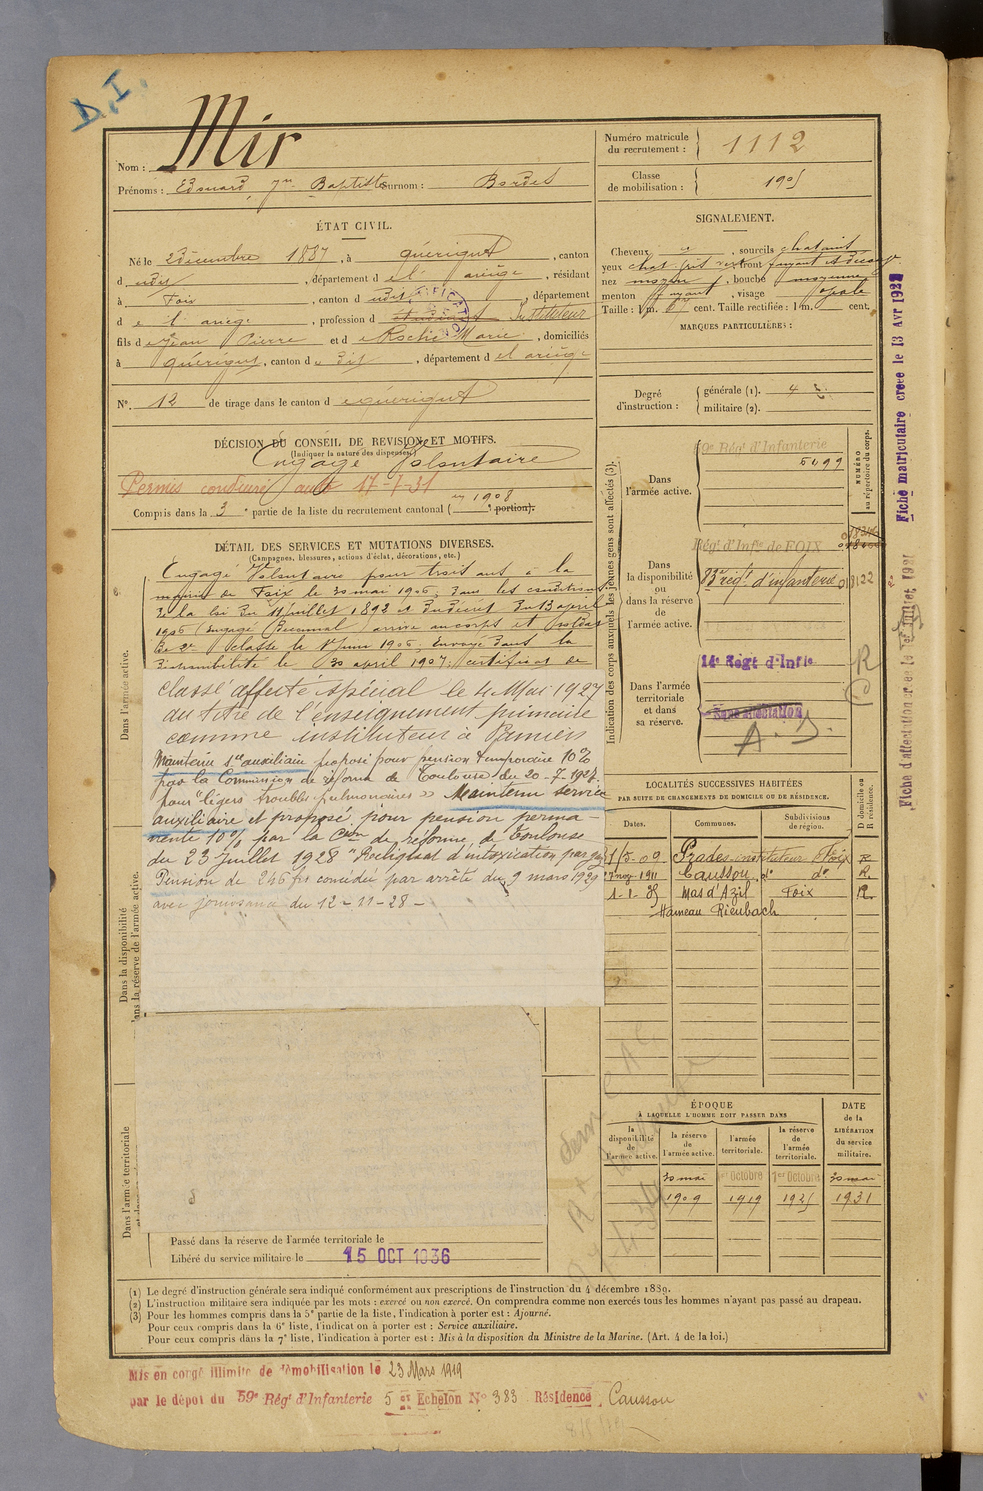 D.I.
Mir
Nom :
Prénoms : Edouard Jn Baptiste Surnom : Bordes
Numéro matricule
du recrutement : 1112
Classe
de mobilisation : 1905
ÉTAT CIVIL.
Né le 2 Décembre 1887, à Quérigut, canton
d udit, département d e l'ariège, résidant
à Foix, canton d udit, département
d e l'ariege, profession d Instituteur
fils d e Jean Pierre et d e Roché Marie, domiciliés
à Quérigut, canton d u dit, département d el ariège
N°. 12 de tirage dans le canton d e Quérigut
DÉCISION DU CONSEIL DE REVISION ET MOTIFS.
(Indiquer la nature des dispenses.)
Engagé Volontaire
Permis conduire auto 17-7-31
en 1908
Compris dans la 3e partie de la liste du recrutement cantonal ( e portion).
SIGNALEMENT.
Cheveux, sourcils chatains
yeux front fuyant
nez moyen, bouche moyenne
menton fuyant, visage ovale
Taille : 1 m. 67 cent. Taille rectifiée : 1 m. cent.
MARQUES PARTICULIÈRES :
Degré
d'instruction :
générale (1). 4
militaire (2).
Fiche matriculaire créée le 13 Avr 192
DÉTAIL DES SERVICES ET MUTATIONS DIVERSES.
(Campagnes, blessures, actions d'éclat, décorations, etc.)
Engagé Volontaire pour trois ans à la
mairie de Foix le 30 mai 1906, dans les conditions
de la loi du 11 juillet 1892 et du Décret du 13 avril
1906 (Engagé Biennal) arrivé au corps et soldat
de 2e classe le 1er juin 1906. Envoyé dans la
disponibilité le 30 avril 1907; certificat de
Classé affecté spécial le 4 Mai 1927
au titre de l'enseignement primaire
comme instituteur à Pamiers
Maintenu sce auxiliaire proposé pour pension temporaire 10%
par la Commission de réforme de Toulouse du 20-7-1924
pour "légers troubles pulmonaires" Maintenu service
auxiliaire et proposé pour pension perma-
nente 10% par la Cson de réforme de Toulouse
du 23 Juillet 1928 "Reliquat d'intoxication par gaz
Pension de 246 frs concédée par arrêté du 9 mars 1929
avec jouissance du 12-11-28 -
Dans l'armée active.
Dans la disponibilité
ou dans la réserve de l'armée active.
Dans l'armée territoriale
Indication des corps auxquels les jeunes gens sont affectés (3).
NUMÉRO
au répertoire du corps.
Dans
l'armée active.
59e Régt d'Infanterie
5099
Dans
la disponibilité
ou
dans la réserve
de
l'armée active.
Régt d'Infie de FOIX
83e régt d'infanterie 018122
Dans l'armée
territoriale
et dans
sa réserve.
14e Régt d'Infie
Sans affectation
A. D.
R
LOCALITÉS SUCCESSIVES HABITÉES
PAR SUITE DE CHANGEMENTS DE DOMICILE OU DE RÉSIDENCE.
Dates. Communes. Subdivisions
de région. D domicile ou
R résidence.
1/5-09 Prades, instituteur Foix R
7 nov 1911 Caussou, do do R.
1-1-35 Mas d'Azil Foix R.
Hameau Rieubach
ÉPOQUE
À LAQUELLE L'HOMME DOIT PASSER DANS
la
disponibilité
de
l'armée active.
la réserve
de
l'armée active.
l'armée
territoriale.
la réserve
de
l'armée
territoriale.
DATE
de la
LIBÉRATION
du service
militaire.
30 mai 1er Octobre 1er Octobre 30 mai
1909 1919 1925 1931
Passé dans la réserve de l'armée territoriale le
Libéré du service militaire le 15 OCT 1936
(1) Le degré d'instruction générale sera indiqué conformément aux prescriptions de l'instruction du 4 décembre 1889.
(2) L'instruction militaire sera indiquée par les mots : exercé ou non exercé. On comprendra comme non exercés tous les hommes n'ayant pas passé au drapeau.
(3) Pour les hommes compris dans la 5e partie de la liste, l'indication à porter est : Ajourné.
Pour ceux compris dans la 6e liste, l'indication à porter est : Service auxiliaire.
Pour ceux compris dans la 7e liste, l'indication à porter est : Mis à la disposition du Ministre de la Marine. (Art. 4 de la loi.)
Mis en congé illimité de démobilisation le 23 Mars 1919
par le dépôt du 59e Régt d'Infanterie 5 er Echelon No 383 Résidence Caussou